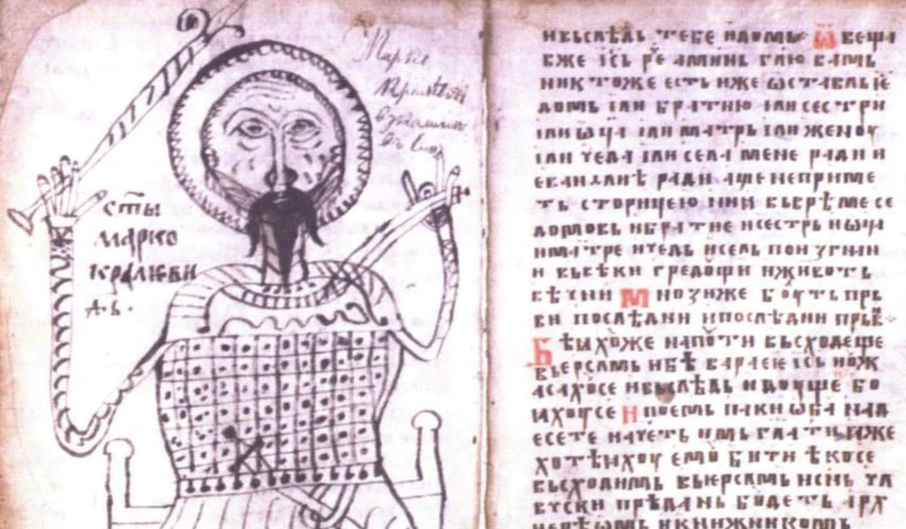 сты
марко
кралеви
д.ь.
Марко
ивьслѣдь тебе идомь И вѣща
вже їсь ре аминь глю вамь
никтоже есть иже ѡставль іе
домь или братию или сестри
или ѡца или матрь или женоу
или чеда или села мене ради и
ради аще неприме
ть сторицею нини вьврѣме се
домовь ибратие исестрь иѡца
иматре ичедь исель по изгнан
и вьвѣки гредощи иживоть
вѣчни Мнозиже боуть прь
ви послѣдни ипослѣдни прьв
Бѣыхоже напоти вьсходеще
вьерсамь ибѣ вараее їсь иож
асахосе ивьслѣдь идоуще бо
ꙗхоусе И поемь паки ѡба над
есете начеть имь глати ꙗже
хотѣыхоу емоу бити ѣкосе
вьсходимь вьерсамь иснь чл
вчски прѣдань боудеть арх
иерѣѡмь икнижникомь